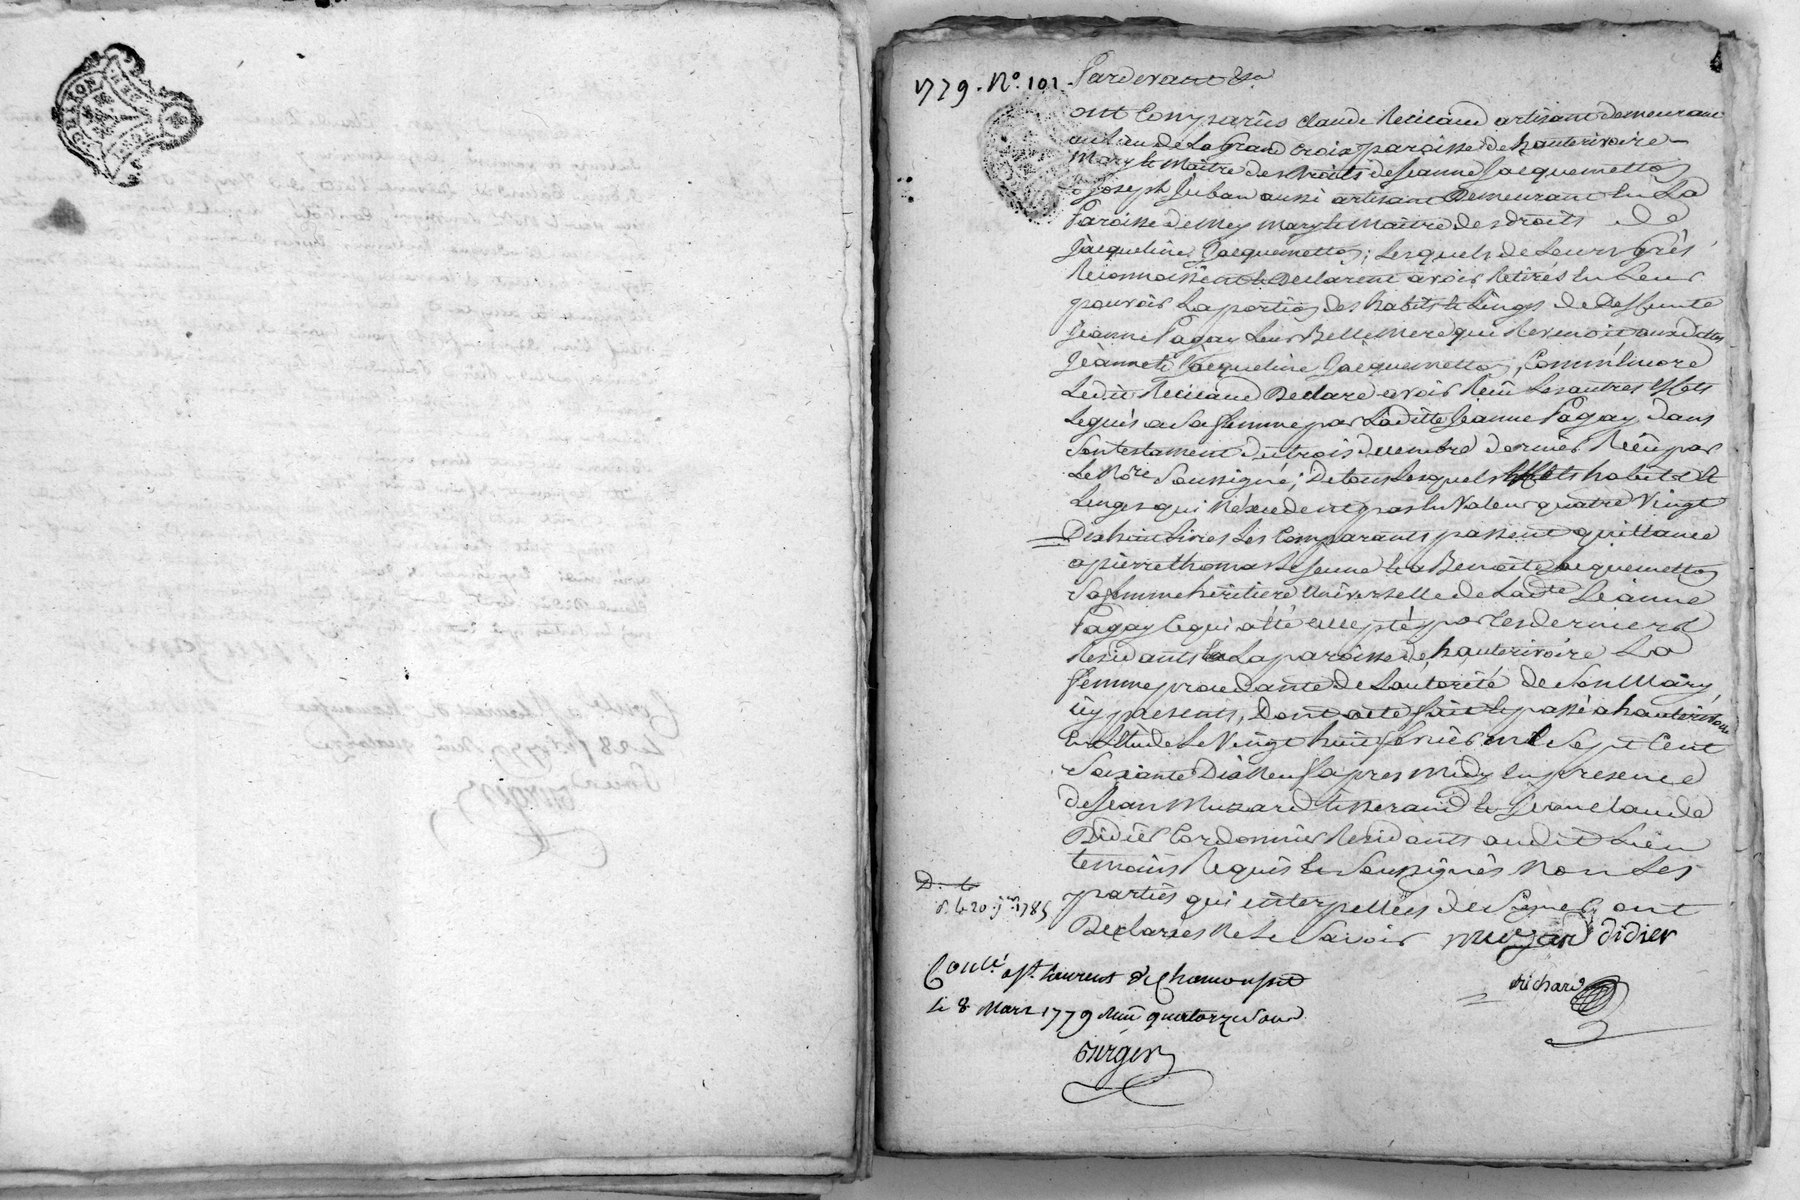 1779. No. 101.
Pardevant &a
ont Comparûs claude Recicaud artisant demeurant
au Lieu de La Grand croix paroisse de hauterivoire
Mary & Maitre des droits de Jeanne Jacquemetton
& Joseph Juban aussi artisant Demeurant En La
Paroisse de Meys mary & Maitre des droits de
Jacqueline Jacquemetton; Lesquels de Leurs Grés
Reconnoissent & Declarent avoir Retirés En Leur
pouvoir La portion des habits & Linges de Deffunte
Jeanne Pagay Leur Belle Mere qui Revenoit auxdittes
Jeanne & Jacqueline Jacquemetton, Comm'Encore
Ledit Recicaud Declare avoir Reçû Les autres Effets
Legués a Sa femme par Laditte Jeanne Pagay dans
Son testament du trois decembre dernier Reçû par
Le Nore Soussigné; De tous Lesquels Effets habits &
Linges qui N'excedent pas En Valeur quatre Vingt
Dix huit Livres Les Comparants passent quittance
a pierre thomas Le jeune & a Benoite Jacquemetton
Sa femme hèritiere Universelle de Ladte Jeanne
Pagay Ce qui a êté accepté par Ces derniers
Residants En La paroisse de hauterivoire La
femme procedante de L'autorité de Son Mary
icy presents, Dont acte fait & passé a hauterivoire
En L'Etude Le Vingt huit fevrier mil Sept Cent
Soixante Dix Neuf apres Midy En presence
de Jean Muzard tisserand & Jean claude
Didier Cordonnier Residants audit Lieu
temoins Requis & Soussignés Non Les
parties qui interpellées de Signer ont
Declarées Ne Le Savoir muzard didier
D. le
d. le 20 1785
Conlé a St. Laurent de Chamousset
Le 8 Mars 1779 Reçu quatorze sous
richard